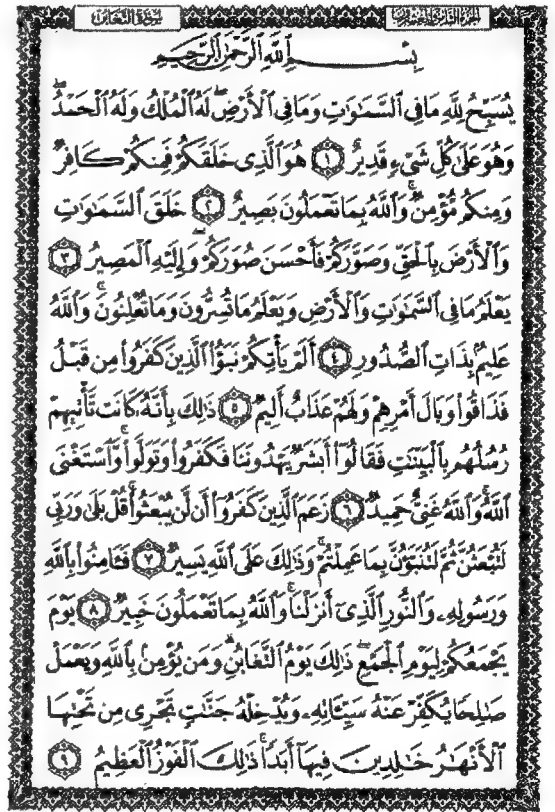 سورة التغابن الجزء الثامن والعشرون
بِسْمِ اللَّهِ الرَّحْمَٰنِ الرَّحِيمِ
يُسَبِّحُ لِلَّهِ مَا فِي السَّمَٰوَٰتِ وَمَا فِي الْأَرْضِ ۖ لَهُ الْمُلْكُ وَلَهُ الْحَمْدُ ۖ
وَهُوَ عَلَىٰ كُلِّ شَيْءٍ قَدِيرٌ ﴿١﴾ هُوَ الَّذِي خَلَقَكُمْ فَمِنكُمْ كَافِرٌ
وَمِنكُم مُّؤْمِنٌ ۚ وَاللَّهُ بِمَا تَعْمَلُونَ بَصِيرٌ ﴿٢﴾ خَلَقَ السَّمَٰوَٰتِ
وَالْأَرْضَ بِالْحَقِّ وَصَوَّرَكُمْ فَأَحْسَنَ صُوَرَكُمْ ۖ وَإِلَيْهِ الْمَصِيرُ ﴿٣﴾
يَعْلَمُ مَا فِي السَّمَٰوَٰتِ وَالْأَرْضِ وَيَعْلَمُ مَا تُسِرُّونَ وَمَا تُعْلِنُونَ ۚ وَاللَّهُ
عَلِيمٌ بِذَاتِ الصُّدُورِ ﴿٤﴾ أَلَمْ يَأْتِكُمْ نَبَؤُا الَّذِينَ كَفَرُوا مِن قَبْلُ
فَذَاقُوا وَبَالَ أَمْرِهِمْ وَلَهُمْ عَذَابٌ أَلِيمٌ ﴿٥﴾ ذَٰلِكَ بِأَنَّهُ كَانَت تَّأْتِيهِمْ
رُسُلُهُم بِالْبَيِّنَٰتِ فَقَالُوا أَبَشَرٌ يَهْدُونَنَا فَكَفَرُوا وَتَوَلَّوا ۚ وَّاسْتَغْنَى
اللَّهُ ۚ وَاللَّهُ غَنِيٌّ حَمِيدٌ ﴿٦﴾ زَعَمَ الَّذِينَ كَفَرُوا أَن لَّن يُبْعَثُوا ۚ قُلْ بَلَىٰ وَرَبِّي
لَتُبْعَثُنَّ ثُمَّ لَتُنَبَّؤُنَّ بِمَا عَمِلْتُمْ ۚ وَذَٰلِكَ عَلَى اللَّهِ يَسِيرٌ ﴿٧﴾ فَـَٔامِنُوا بِاللَّهِ
وَرَسُولِهِ وَالنُّورِ الَّذِي أَنزَلْنَا ۚ وَاللَّهُ بِمَا تَعْمَلُونَ خَبِيرٌ ﴿٨﴾ يَوْمَ
يَجْمَعُكُمْ لِيَوْمِ الْجَمْعِ ۖ ذَٰلِكَ يَوْمُ التَّغَابُنِ ۗ وَمَن يُؤْمِنۢ بِاللَّهِ وَيَعْمَلْ
صَٰلِحًا يُكَفِّرْ عَنْهُ سَيِّـَٔاتِهِ وَيُدْخِلْهُ جَنَّٰتٍ تَجْرِي مِن تَحْتِهَا
الْأَنْهَٰرُ خَٰلِدِينَ فِيهَا أَبَدًا ۚ ذَٰلِكَ الْفَوْزُ الْعَظِيمُ ﴿٩﴾